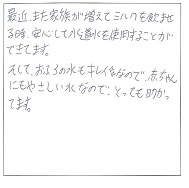 最近、また家族が増えてミルクを飲ませ
る時、安心して水道水を使用することが
できてます。
そして、おふろの水もキレイなので、赤ちゃん
にもやさしい水なので、とっても助かっ
てます。